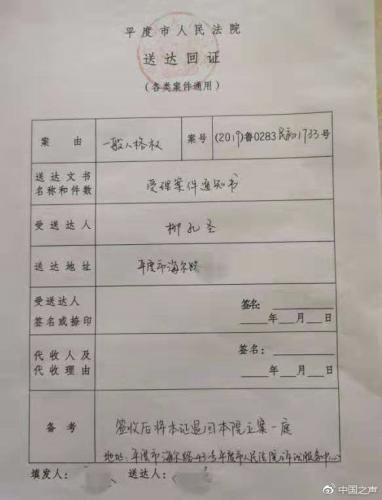 平度市人民法院
送达回证
（各类案件通用）
案由 一般人格权 案号 (2019)鲁0283民初1733号
送达文书名称和件数 受理案件通知书
受送达人 柳孔圣
送达地址 平度市海尔路
受送达人签名或捺印 签名:
年 月 日
代收人及代收理由 签名:
年 月 日
备考 签收后将本证退回本院立案一庭
地址:平度市海尔路43号平度市人民法院诉讼服务中心
填发人: 送达人:
@中国之声